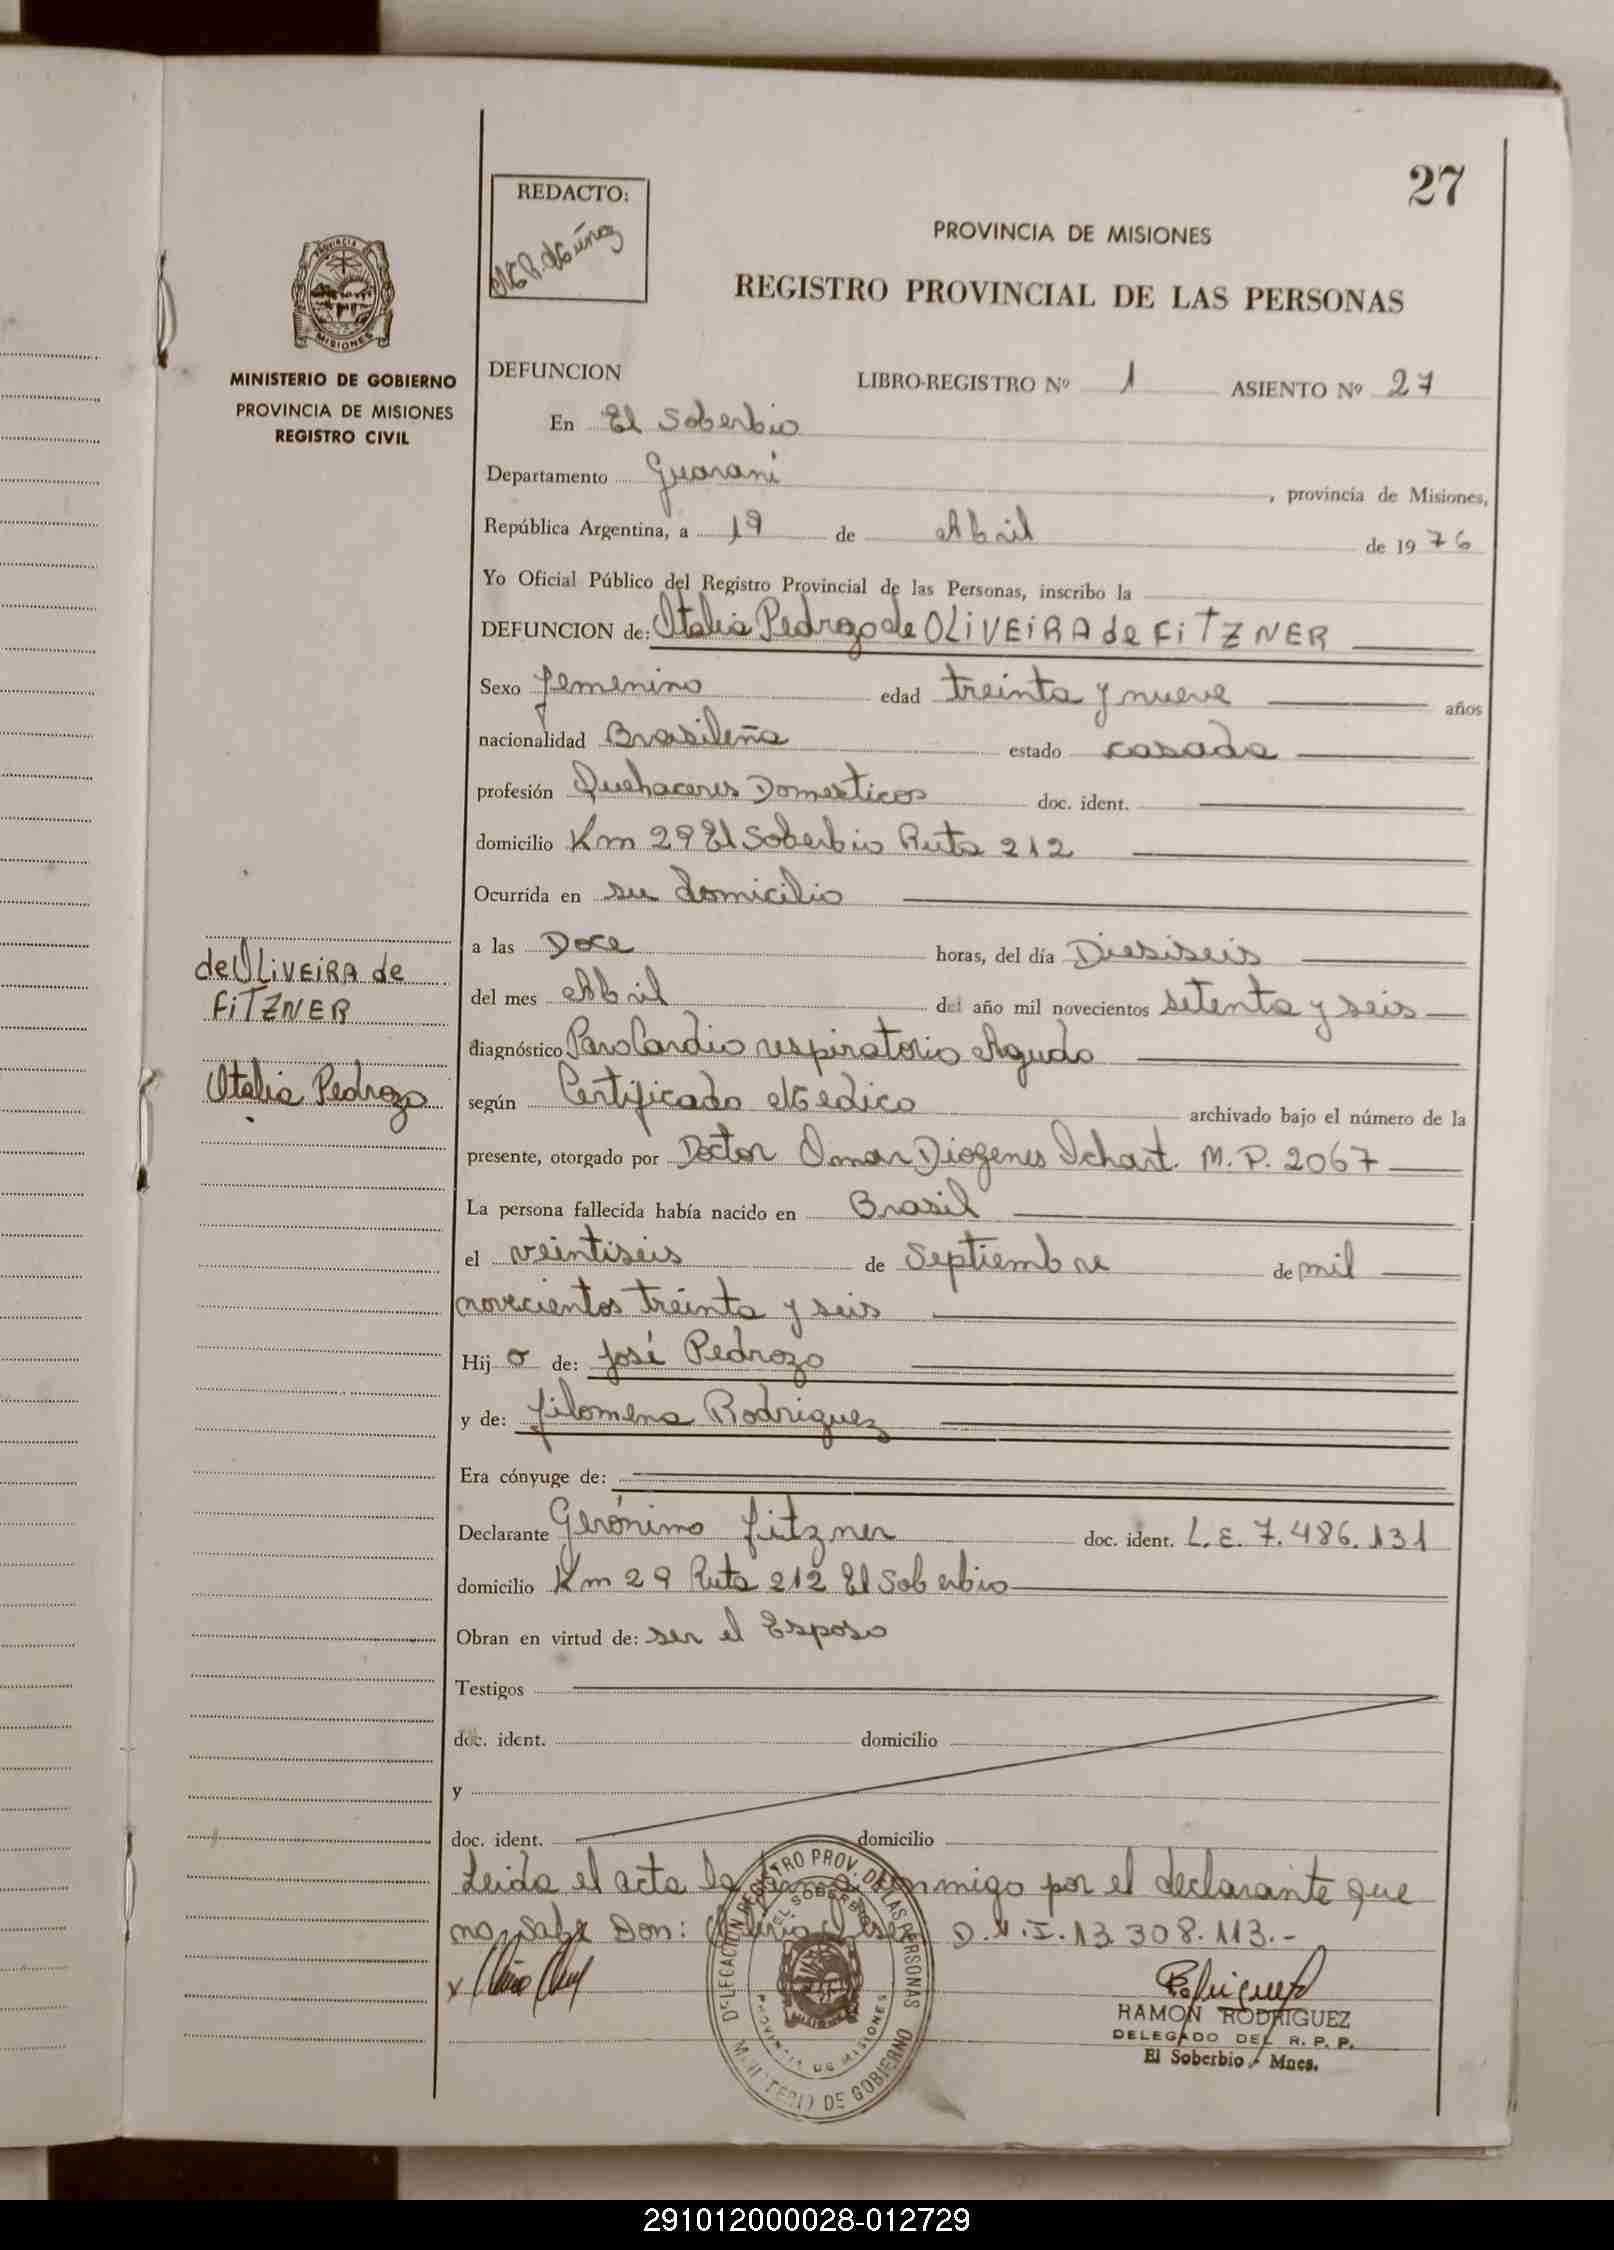 27
REDACTO:
PROVINCIA DE MISIONES
REGISTRO PROVINCIAL DE LAS PERSONAS
PROVINCIA DE
MISIONES
MINISTERIO DE GOBIERNO
PROVINCIA DE MISIONES
REGISTRO CIVIL
DEFUNCION LIBRO-REGISTRO Nº 1 ASIENTO Nº 27
En El Soberbio
Departamento Guarani, provincia de Misiones,
República Argentina, a 19 de Abril de 1976
Yo Oficial Público del Registro Provincial de las Personas, inscribo la
DEFUNCION de: Otalia Pedrozo de OLIVEIRA de FiTZNER
Sexo femenino edad treinta y nueve años
nacionalidad Brasileña estado casada
profesión Quehaceres Domesticos doc. ident.
domicilio Km 29 El Soberbio Ruta 212
Ocurrida en su domicilio
a las Doce horas, del día Diesiseis
del mes Abril del año mil novecientos setenta y seis
diagnóstico Paro Cardio respiratorio Agudo
según Certificado Medico archivado bajo el número de la
presente, otorgado por Doctor Omar Diogenes Ichart. M.P. 2067
La persona fallecida había nacido en Brasil
el veintiseis de Septiembre de mil
novecientos treinta y seis
Hij a de: José Pedrozo
y de: filomena Rodriguez
Era cónyuge de:
Declarante Gerónimo fitzner doc. ident. L.E. 7.486.131
domicilio Km 29 Ruta 212 El Soberbio
Obran en virtud de: ser el Esposo
Testigos
doc. ident. domicilio
y
doc. ident. domicilio
Leida el acta la firma conmigo por el declarante que
no sabe Don: D.N.I. 13.308.113.-
de OLiVEiRA de
FiTZNER
Otalia Pedrozo
DELEGACION REGISTRO PROV. DE LAS PERSONAS
EL SOBERBIO
PROVINCIA DE MISIONES
MINISTERIO DE GOBIERNO
RAMON RODRIGUEZ
DELEGADO DEL R. P. P.
El Soberbio - Mnes.
291012000028-012729